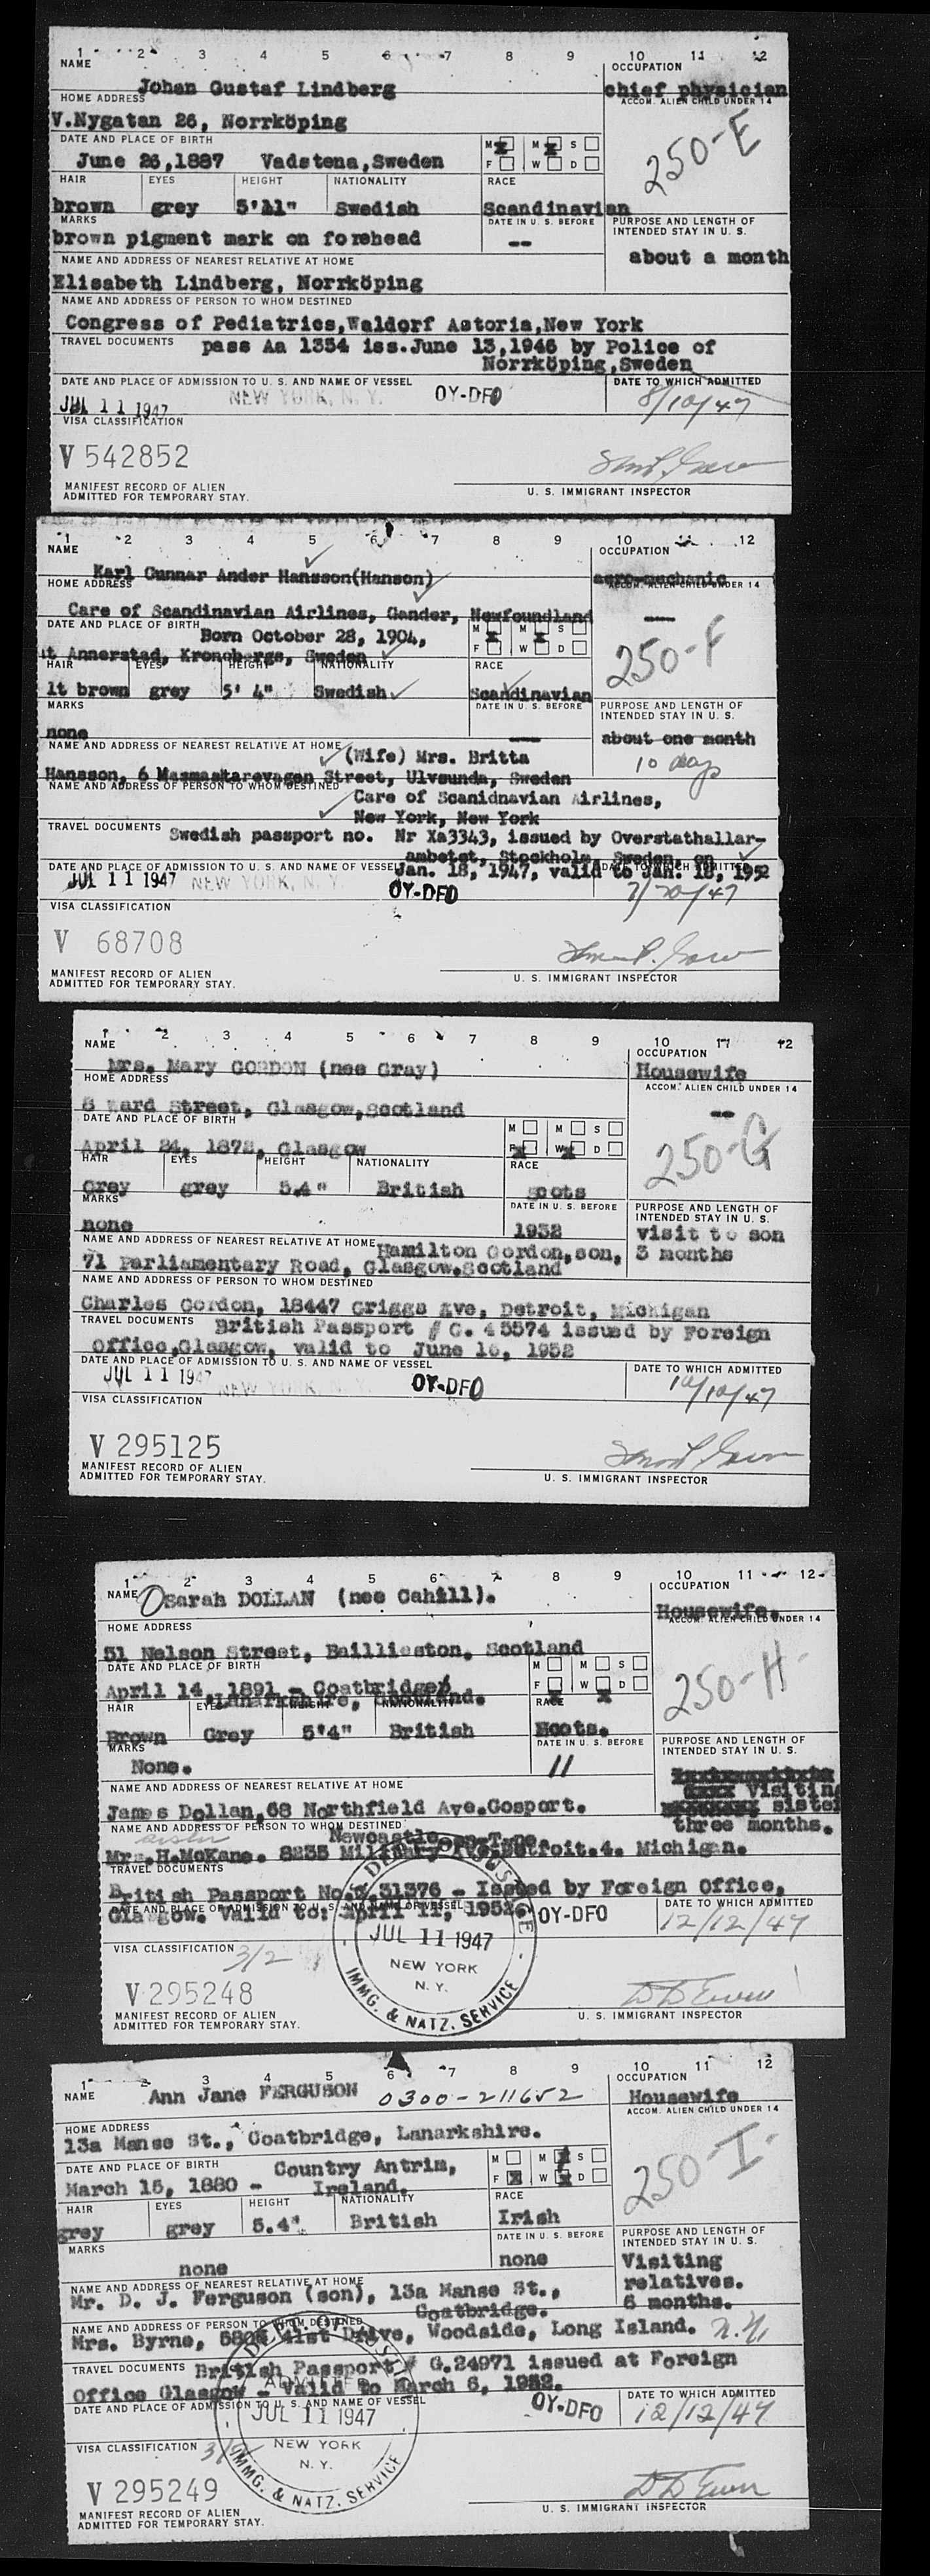 1 2 3 4 5 6 7 8 9 10 11 12
NAME OCCUPATION
Johan Gustaf Lindberg chief physician
HOME ADDRESS ACCOM. ALIEN CHILD UNDER 14
V.Nygatan 26, Norrköping
DATE AND PLACE OF BIRTH M M S 250-E
June 26,1887 Vadstena,Sweden F W D
HAIR EYES HEIGHT NATIONALITY RACE
brown grey 5'11" Swedish Scandinavian
MARKS DATE IN U. S. BEFORE PURPOSE AND LENGTH OF INTENDED STAY IN U. S.
brown pigment mark on forehead -- about a month
NAME AND ADDRESS OF NEAREST RELATIVE AT HOME
Elisabeth Lindberg, Norrköping
NAME AND ADDRESS OF PERSON TO WHOM DESTINED
Congress of Pediatrics,Waldorf Astoria,New York
TRAVEL DOCUMENTS pass Aa 1354 iss.June 13,1946 by Police of
Norrköping,Sweden
DATE AND PLACE OF ADMISSION TO U. S. AND NAME OF VESSEL DATE TO WHICH ADMITTED
JUL 11 1947 NEW YORK, N. Y. OY-DFO 8/10/47
VISA CLASSIFICATION
V 542852
MANIFEST RECORD OF ALIEN
ADMITTED FOR TEMPORARY STAY. U. S. IMMIGRANT INSPECTOR
1 2 3 4 5 6 7 8 9 10 11 12
NAME OCCUPATION
Karl Gunnar Ander Hansson(Hanson) aero-mechanic
HOME ADDRESS ACCOM. ALIEN CHILD UNDER 14
Care of Scandinavian Airlines, Gander, Newfoundland
DATE AND PLACE OF BIRTH Born October 28, 1904, M M S
at Annerstad, Kronobergs, Sweden F W D 250-F
HAIR EYES HEIGHT NATIONALITY RACE
lt brown grey 5' 4" Swedish Scandinavian
MARKS DATE IN U. S. BEFORE PURPOSE AND LENGTH OF INTENDED STAY IN U. S.
none about one month
NAME AND ADDRESS OF NEAREST RELATIVE AT HOME (Wife) Mrs. Britta 10 days
Hansson, 6 Street, Ulvsunda, Sweden
NAME AND ADDRESS OF PERSON TO WHOM DESTINED Care of Scanidnavian Airlines,
New York, New York
TRAVEL DOCUMENTS Swedish passport no. Nr Xa3343, issued by Overstathallar-
ambetet, Stockholm, Sweden, on
DATE AND PLACE OF ADMISSION TO U. S. AND NAME OF VESSEL Jan. 18, 1947, valid to Jan. 18, 1952 DATE TO WHICH ADMITTED
JUL 11 1947 NEW YORK, N. Y. OY-DFO 7/20/47
VISA CLASSIFICATION
V 68708
MANIFEST RECORD OF ALIEN
ADMITTED FOR TEMPORARY STAY. U. S. IMMIGRANT INSPECTOR
1 2 3 4 5 6 7 8 9 10 11 12
NAME OCCUPATION
Mrs. Mary GORDON (nee Gray) Housewife
HOME ADDRESS ACCOM. ALIEN CHILD UNDER 14
8 Ward Street, Glasgow,Scotland --
DATE AND PLACE OF BIRTH M M S
April 24, 1872, Glasgow F W D 250-G
HAIR EYES HEIGHT NATIONALITY RACE
Grey grey 5.4" British Scots
MARKS DATE IN U. S. BEFORE PURPOSE AND LENGTH OF INTENDED STAY IN U. S.
none 1932 visit to son
NAME AND ADDRESS OF NEAREST RELATIVE AT HOME Hamilton Gordon,son, 3 months
71 Parliamentary Road, Glasgow.Scotland
NAME AND ADDRESS OF PERSON TO WHOM DESTINED
Charles Gordon, 18447 Griggs Ave, Detroit, Michigan
TRAVEL DOCUMENTS British Passport # C. 45574 issued by Foreign
Office,Glasgow, valid to June 16, 1952
DATE AND PLACE OF ADMISSION TO U. S. AND NAME OF VESSEL DATE TO WHICH ADMITTED
JUL 11 1947 NEW YORK, N. Y. OY-DFO 10/10/47
VISA CLASSIFICATION
V 295125
MANIFEST RECORD OF ALIEN
ADMITTED FOR TEMPORARY STAY. U. S. IMMIGRANT INSPECTOR
1 2 3 4 5 6 7 8 9 10 11 12
NAME Sarah DOLLAN (nee Cahill). OCCUPATION
HOME ADDRESS Housewife. ACCOM. ALIEN CHILD UNDER 14
51 Nelson Street, Baillieston. Scotland
DATE AND PLACE OF BIRTH M M S
April 14, 1891 - Coatbridge F W D 250-H
Lanarkshire, Scotland.
HAIR EYES HEIGHT NATIONALITY RACE
Brown Grey 5'4" British Scots.
MARKS DATE IN U. S. BEFORE PURPOSE AND LENGTH OF INTENDED STAY IN U. S.
None. 11
NAME AND ADDRESS OF NEAREST RELATIVE AT HOME Visiting
James Dollan,68 Northfield Ave.Gosport. sister
NAME AND ADDRESS OF PERSON TO WHOM DESTINED three months.
sister Newcastle-on-Tyne.
Mrs.H.McKane. 8235 Military Ave.Detroit.4. Michigan.
TRAVEL DOCUMENTS
British Passport No. 31376 - Issued by Foreign Office,
Glasgow. Valid to: April 11, 1952.
DATE AND PLACE OF ADMISSION TO U. S. AND NAME OF VESSEL OY-DFO DATE TO WHICH ADMITTED
JUL 11 1947 12/12/47
VISA CLASSIFICATION 3/2 NEW YORK
N. Y.
V 295248 IMMG. & NATZ. SERVICE
MANIFEST RECORD OF ALIEN
ADMITTED FOR TEMPORARY STAY. U. S. IMMIGRANT INSPECTOR
1 2 3 4 5 6 7 8 9 10 11 12
NAME Ann Jane FERGUSON 0300-211652 OCCUPATION
Housewife
HOME ADDRESS ACCOM. ALIEN CHILD UNDER 14
13a Manse St., Coatbridge, Lanarkshire.
DATE AND PLACE OF BIRTH Country Antrim, M M S
March 15, 1880 - Ireland. F W D 250-I
HAIR EYES HEIGHT NATIONALITY RACE
grey grey 5.4" British Irish
MARKS DATE IN U. S. BEFORE PURPOSE AND LENGTH OF INTENDED STAY IN U. S.
none none Visiting
NAME AND ADDRESS OF NEAREST RELATIVE AT HOME relatives.
Mr. D. J. Ferguson (son), 13a Manse St., 6 months.
Coatbridge.
NAME AND ADDRESS OF PERSON TO WHOM DESTINED
Mrs. Byrne, 41st Drive, Woodside, Long Island. N.Y.
TRAVEL DOCUMENTS British Passport # G.24971 issued at Foreign
Office Glasgow - Valid to March 6, 1952.
DATE AND PLACE OF ADMISSION TO U. S. AND NAME OF VESSEL OY-DFO DATE TO WHICH ADMITTED
ADMITTED
JUL 11 1947 12/12/47
VISA CLASSIFICATION NEW YORK
N. Y.
V 295249 IMMG. & NATZ. SERVICE
MANIFEST RECORD OF ALIEN
ADMITTED FOR TEMPORARY STAY. U. S. IMMIGRANT INSPECTOR